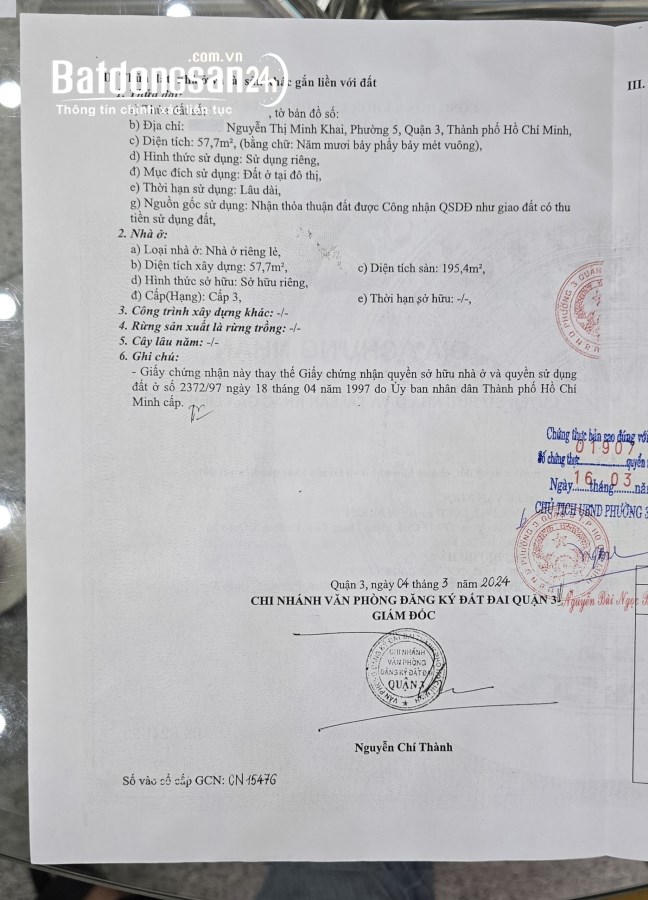 .com.vn
Batdongsan24
Thông tin chính xác liên tục
gắn liền với đất
III.
, tờ bản đồ số:
b) Địa chỉ: Nguyễn Thị Minh Khai, Phường 5, Quận 3, Thành phố Hồ Chí Minh,
c) Diện tích: 57,7m², (bằng chữ: Năm mươi bảy phẩy bảy mét vuông),
d) Hình thức sử dụng: Sử dụng riêng,
đ) Mục đích sử dụng: Đất ở tại đô thị,
e) Thời hạn sử dụng: Lâu dài,
g) Nguồn gốc sử dụng: Nhận thỏa thuận đất được Công nhận QSDĐ như giao đất có thu
tiền sử dụng đất,
2. Nhà ở:
a) Loại nhà ở: Nhà ở riêng lẻ,
b) Diện tích xây dựng: 57,7m², c) Diện tích sàn: 195,4m²,
d) Hình thức sở hữu: Sở hữu riêng,
đ) Cấp(Hạng): Cấp 3, e) Thời hạn sở hữu: -/-,
3. Công trình xây dựng khác: -/-
4. Rừng sản xuất là rừng trồng: -/-
5. Cây lâu năm: -/-
6. Ghi chú:
- Giấy chứng nhận này thay thế Giấy chứng nhận quyền sở hữu nhà ở và quyền sử dụng
đất ở số 2372/97 ngày 18 tháng 04 năm 1997 do Ủy ban nhân dân Thành phố Hồ Chí
Minh cấp.
Chứng thực bản sao đúng với
Số chứng thực 01907 quyển
Ngày 16 tháng 03 nă
CHỦ TỊCH UBND PHƯỜNG 3
Quận 3, ngày 04 tháng 3 năm 2024
CHI NHÁNH VĂN PHÒNG ĐĂNG KÝ ĐẤT ĐAI QUẬN 3
Nguyễn Bùi Ngọc
GIÁM ĐỐC
CHI NHÁNH
VĂN PHÒNG
ĐĂNG KÝ ĐẤT ĐAI
QUẬN 3
Nguyễn Chí Thành
Số vào sổ cấp GCN: CN 15476